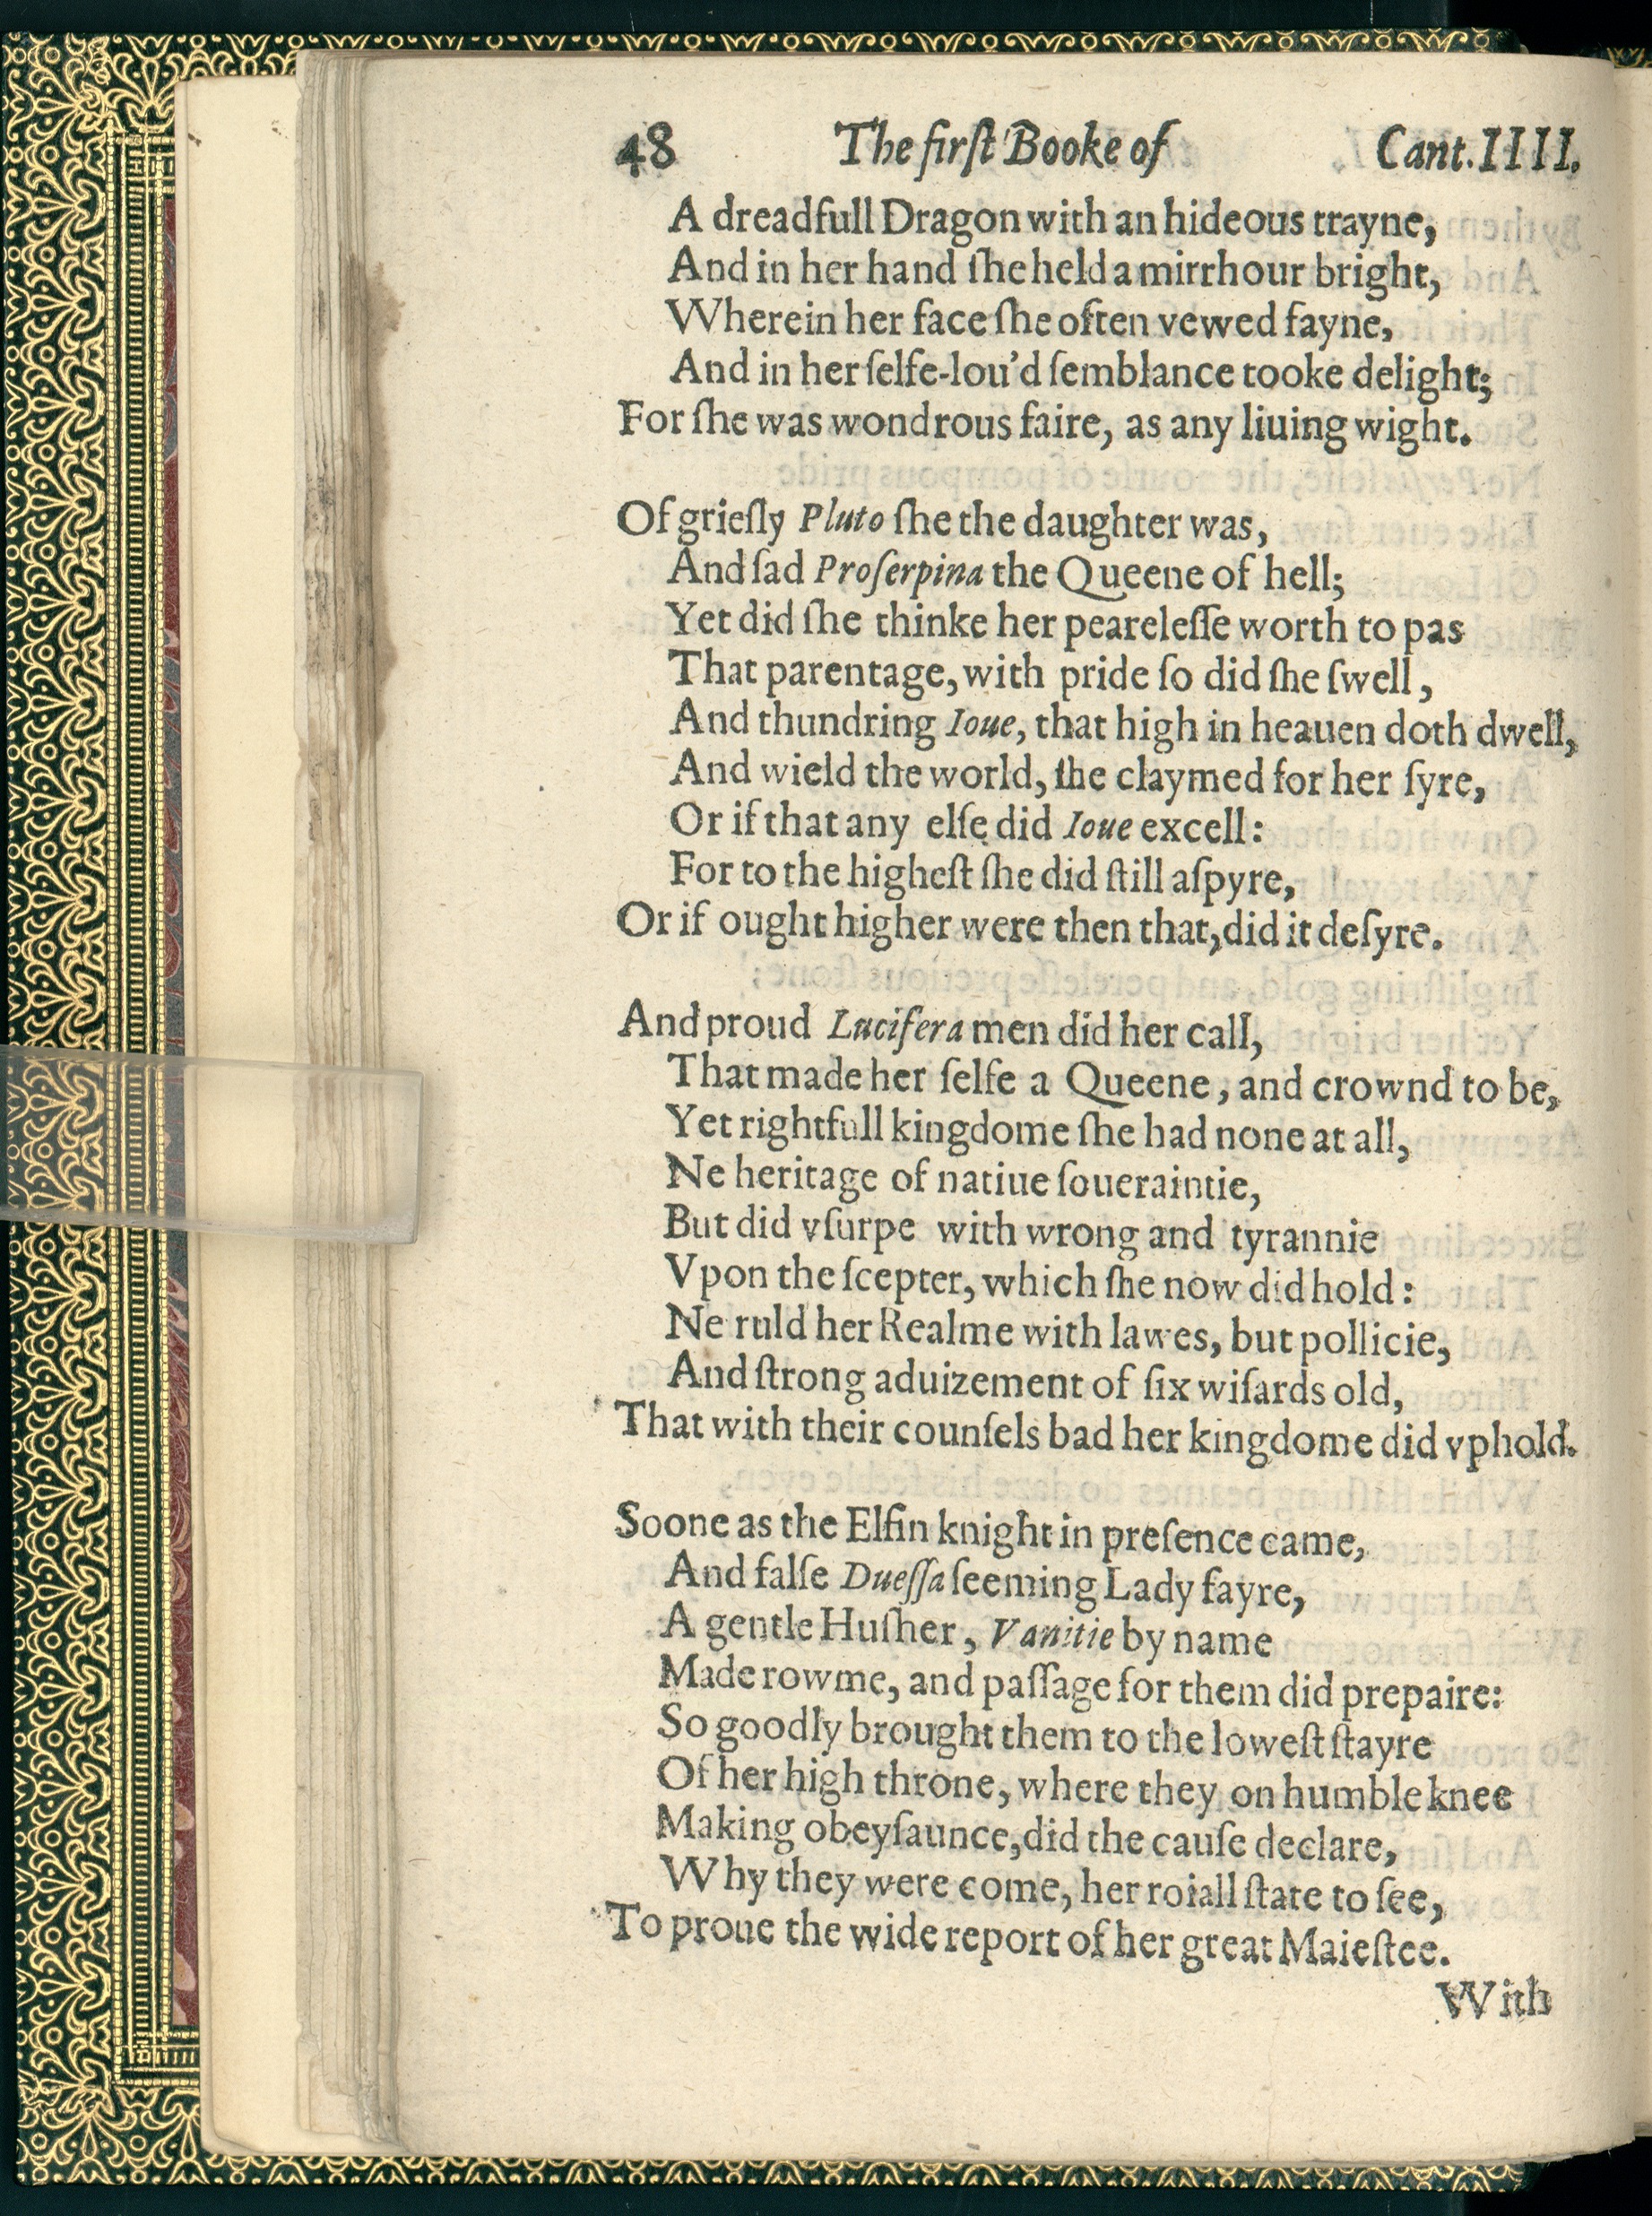 48 The firſt Booke of Cant. IIII.
A dreadfull Dragon with an hideous trayne,
And in her hand ſhe held a mirrhour bright,
Wherein her face ſhe often vewed fayne,
And in her ſelfe-lou'd ſemblance tooke delight;
For ſhe was wondrous faire, as any liuing wight.
Of grieſly Pluto ſhe the daughter was,
And ſad Proſerpina the Queene of hell;
Yet did ſhe thinke her peareleſſe worth to pas
That parentage, with pride ſo did ſhe ſwell,
And thundring Ioue, that high in heauen doth dwell,
And wield the world, ſhe claymed for her ſyre,
Or if that any elſe did Ioue excell:
For to the higheſt ſhe did ſtill aſpyre,
Or if ought higher were then that, did it deſyre.
And proud Lucifera men did her call,
That made her ſelfe a Queene, and crownd to be,
Yet rightfull kingdome ſhe had none at all,
Ne heritage of natiue ſoueraintie,
But did vſurpe with wrong and tyrannie
Vpon the ſcepter, which ſhe now did hold:
Ne ruld her Realme with lawes, but pollicie,
And ſtrong aduizement of ſix wiſards old,
That with their counſels bad her kingdome did vphold.
Soone as the Elfin knight in preſence came,
And falſe Dueſſa ſeeming Lady fayre,
A gentle Huſher, Vanitie by name
Made rowme, and paſſage for them did prepaire:
So goodly brought them to the loweſt ſtayre
Of her high throne, where they on humble knee
Making obeyſaunce, did the cauſe declare,
Why they were come, her roiall ſtate to ſee,
To proue the wide report of her great Maieſtee.
With